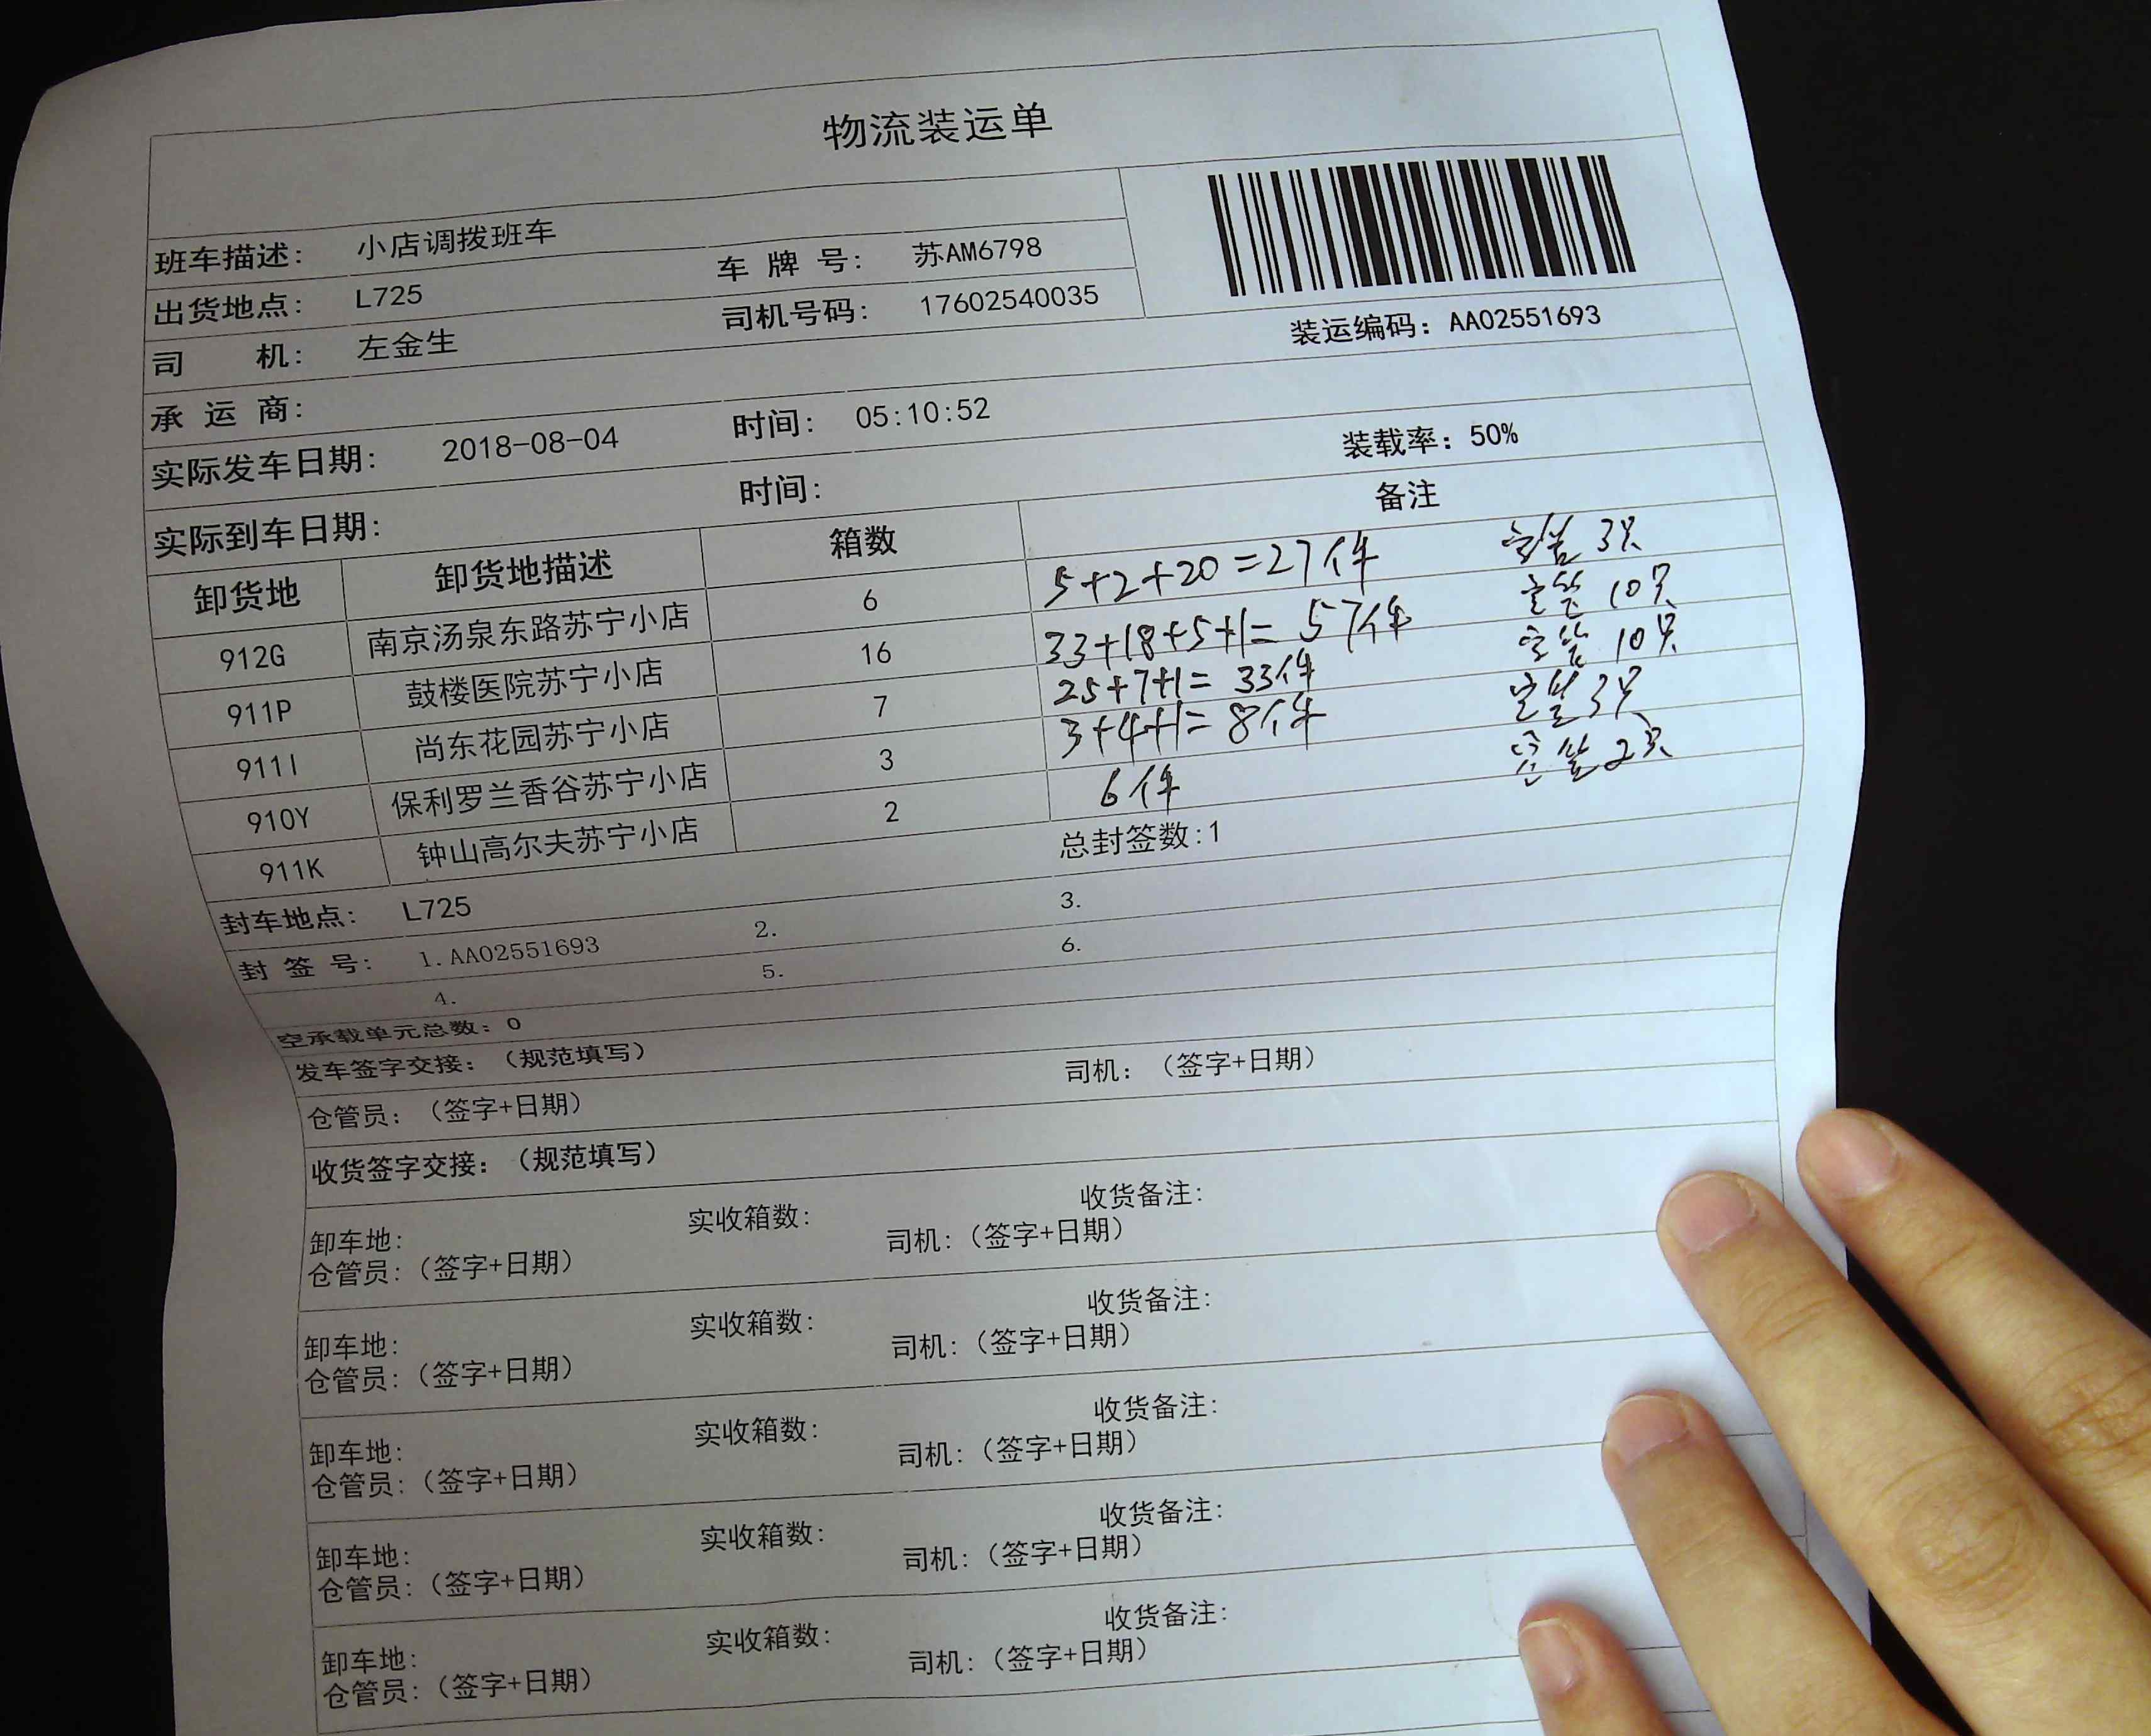 物流装运单
班车描述： 小店调拨班车
出货地点： L725 车 牌 号： 苏AM6798
司 机： 左金生 司机号码： 17602540035
装运编码：AA02551693
承 运 商：
实际发车日期： 2018-08-04 时间： 05:10:52
装载率：50%
实际到车日期： 时间：
卸货地 卸货地描述 箱数 备注
912G 南京汤泉东路苏宁小店 6 5+2+20=27件 3只
911P 鼓楼医院苏宁小店 16 33+18+5+1= 57件 10只
911I 尚东花园苏宁小店 7 25+7+1= 33件 10只
910Y 保利罗兰香谷苏宁小店 3 3+4+1= 8件 3只
911K 钟山高尔夫苏宁小店 2 6件 2只
封车地点： L725 总封签数:1
封 签 号： 1.AA02551693 2. 3.
4. 5. 6.
空承载单元总数：0
发车签字交接：（规范填写）
仓管员：（签字+日期） 司机：（签字+日期）
收货签字交接：（规范填写）
卸车地： 实收箱数： 收货备注：
仓管员：（签字+日期） 司机：（签字+日期）
卸车地： 实收箱数： 收货备注：
仓管员：（签字+日期） 司机：（签字+日期）
卸车地： 实收箱数： 收货备注：
仓管员：（签字+日期） 司机：（签字+日期）
卸车地： 实收箱数： 收货备注：
仓管员：（签字+日期） 司机：（签字+日期）
卸车地： 实收箱数： 收货备注：
仓管员：（签字+日期） 司机：（签字+日期）